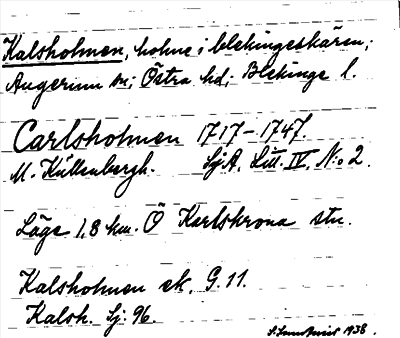 Kalsholmen, holme i blekingeskären;
Augerum sn; Östra hd; Blekinge l.
Carlsholmen 1717-1747.
M. Kullenbergh. Sj.A. Litt. IV. No 2.
Läge 1,8 km. Ö Karlskrona stn.
Kalsholmen ek. G. 11.
Kalsh. Sj. 96.
1938.